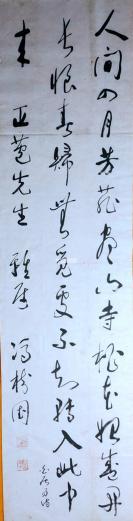 人间四月芳菲尽山寺桃花始盛开
长恨春归无觅处不知转入此中
来 正苞先生 雅属 冯树国